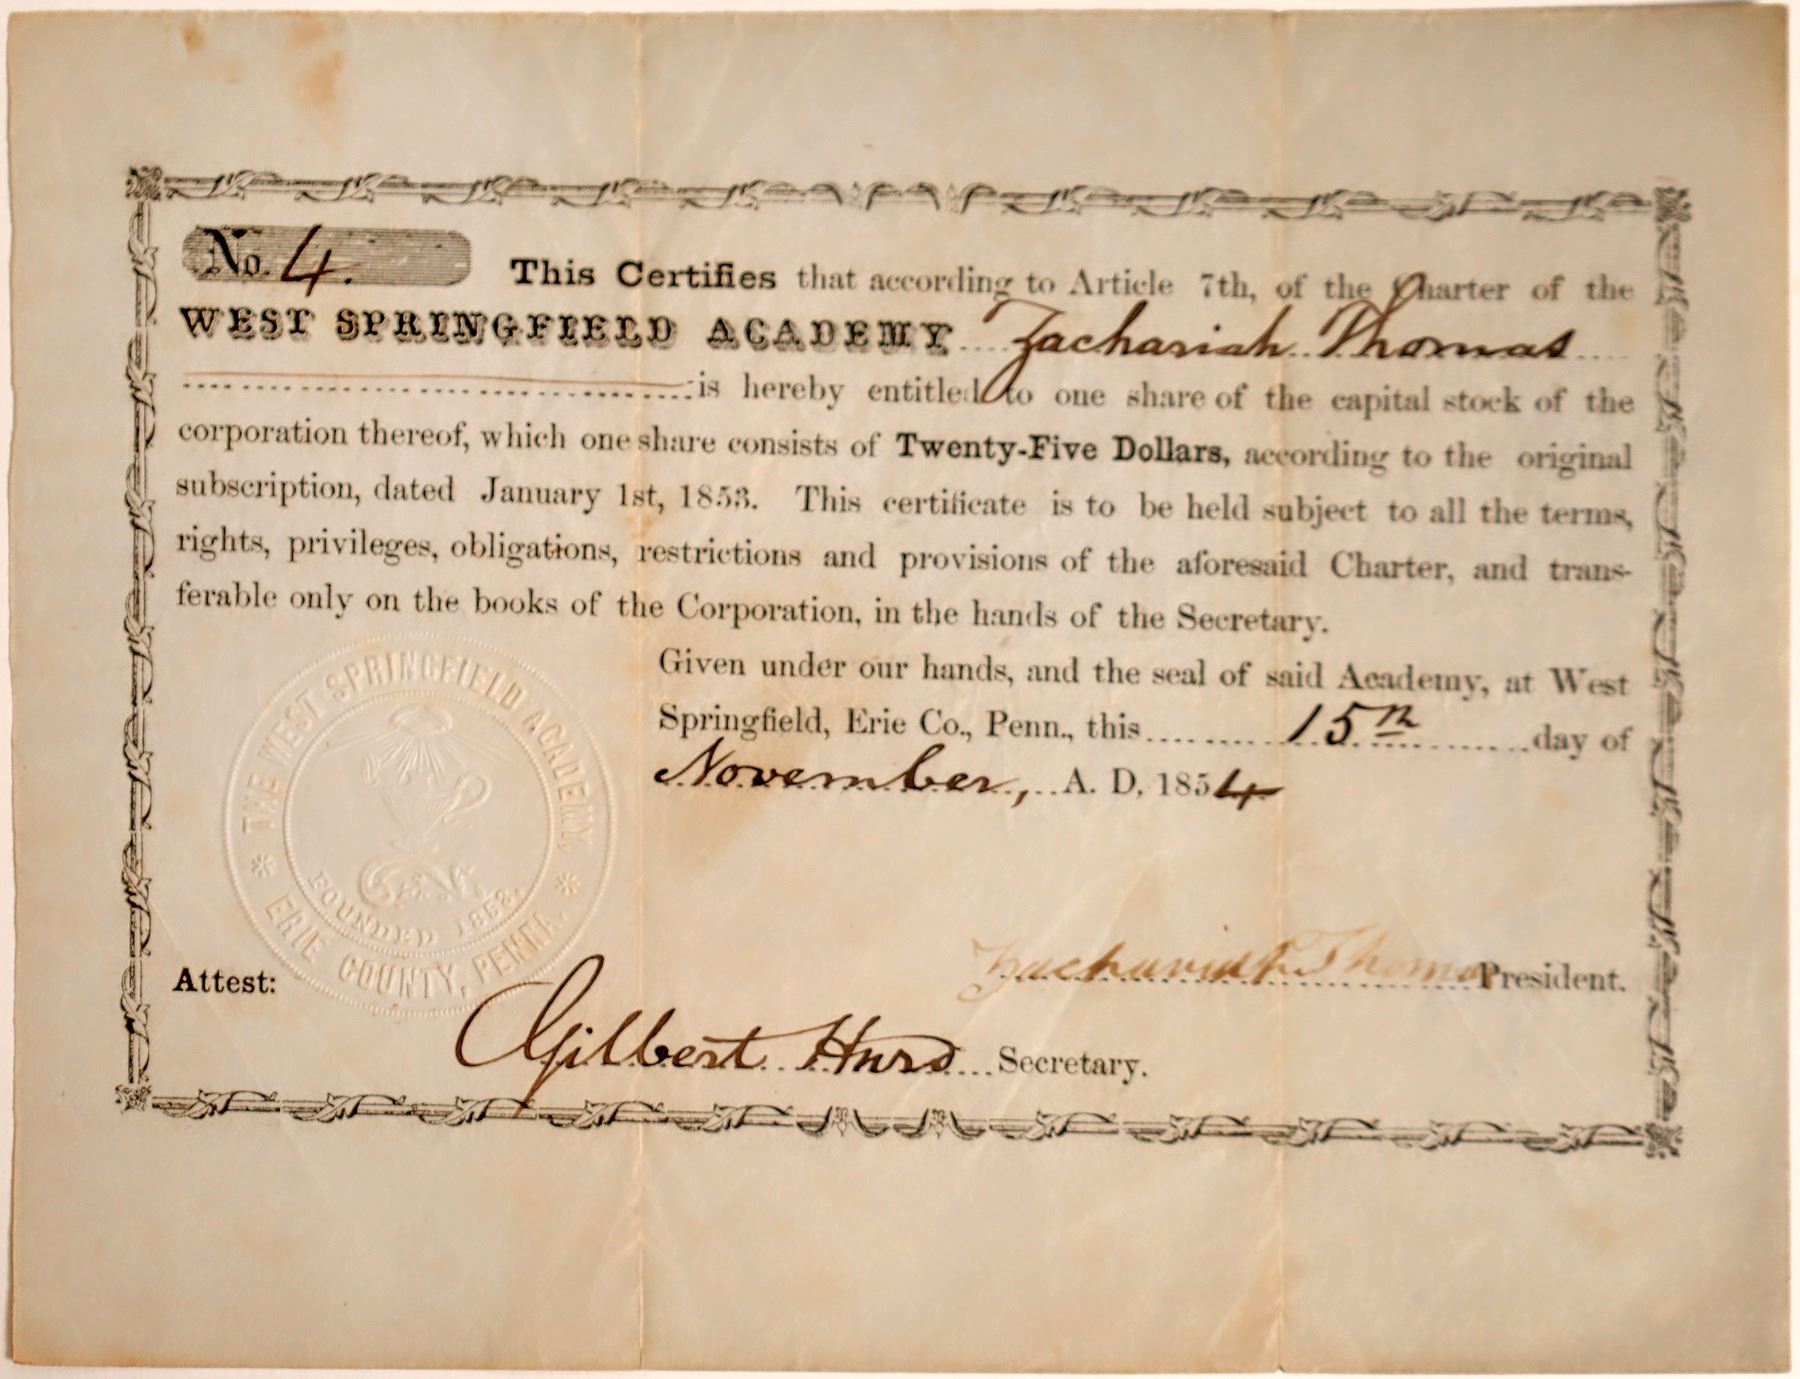 No. 4. This Certifies that according to Article 7th, of the Charter of the
WEST SPRINGFIELD ACADEMY Zachariah Thomas
is hereby entitled to one share of the capital stock of the
corporation thereof, which one share consists of Twenty-Five Dollars, according to the original
subscription, dated January 1st, 1853. This certificate is to be held subject to all the terms,
rights, privileges, obligations, restrictions and provisions of the aforesaid Charter, and trans-
ferable only on the books of the Corporation, in the hands of the Secretary.
Given under our hands, and the seal of said Academy, at West
Springfield, Erie Co., Penn., this 15th day of
November, A. D. 1854
THE WEST SPRINGFIELD ACADEMY.
FOUNDED 1853.
* ERIE COUNTY, PENNA. *
Zachariah Thomas President.
Attest:
Gilbert Hurd Secretary.